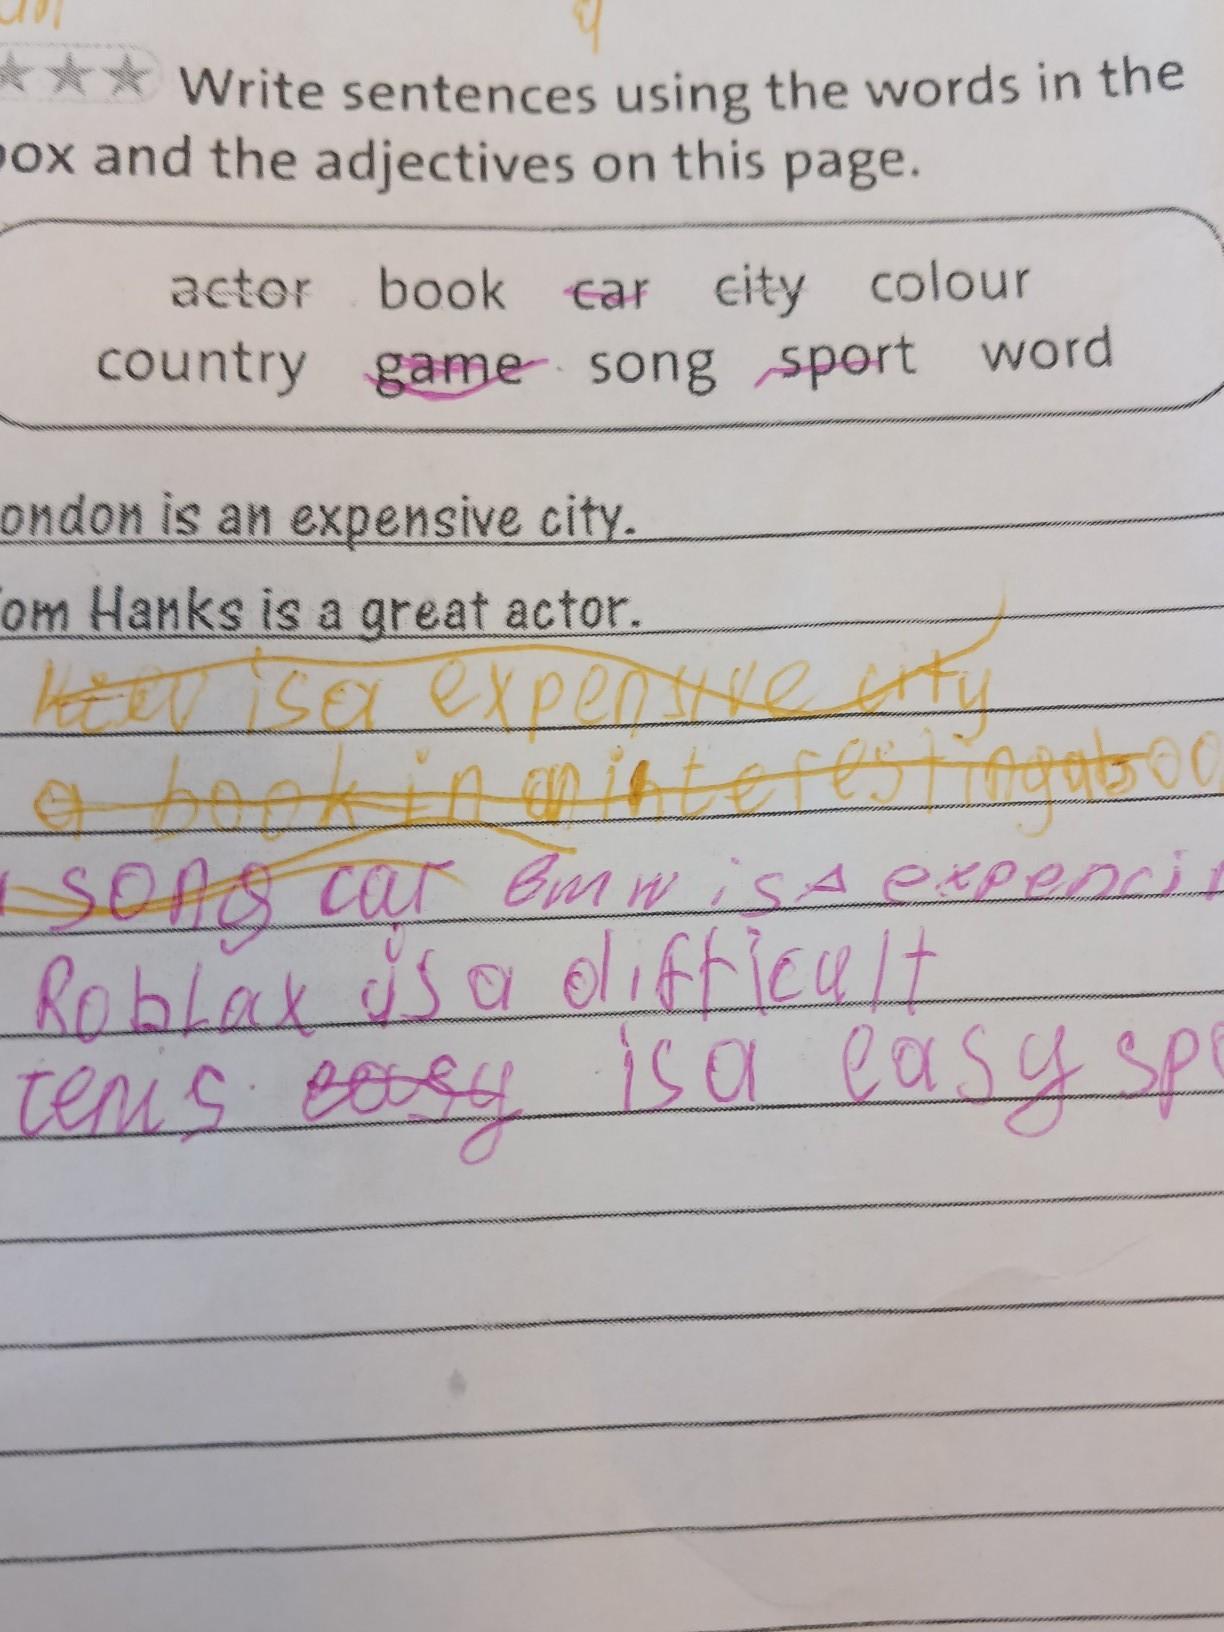 Write sentences using the words in the
box and the adjectives on this page.
actor book car city colour
country game song sport word
ondon is an expensive city.
om Hanks is a great actor.
Kiev is a expensive city
a book in an interesting a boo
song car Bmw is a expenci
Roblax is a difficult
tenis easy is a easy spo